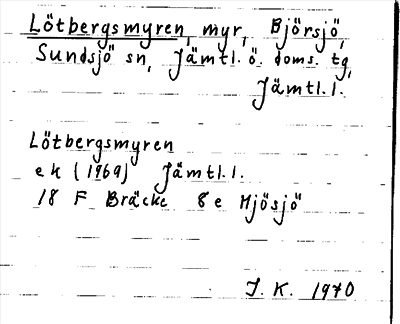 Lötbergsmyren, myr, Björsjö,
Sundsjö sn, Jämtl. ö. doms. tg,
Jämtl. l.
Lötbergsmyren
ek (1969) Jämtl. l.
18 F Bräcke 8e Mjösjö
J. K. 1970